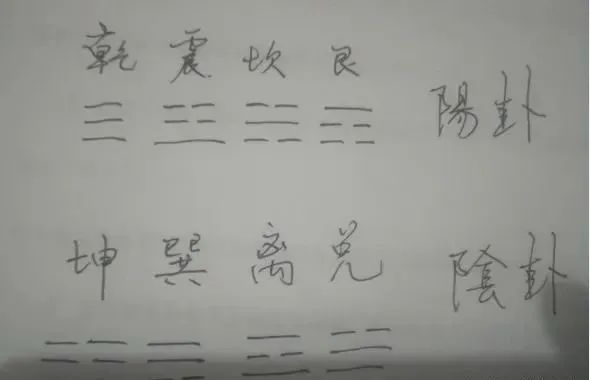 乾 震 坎 艮 陽卦
☰ ☳ ☵ ☶
坤 巽 离 兑 陰卦